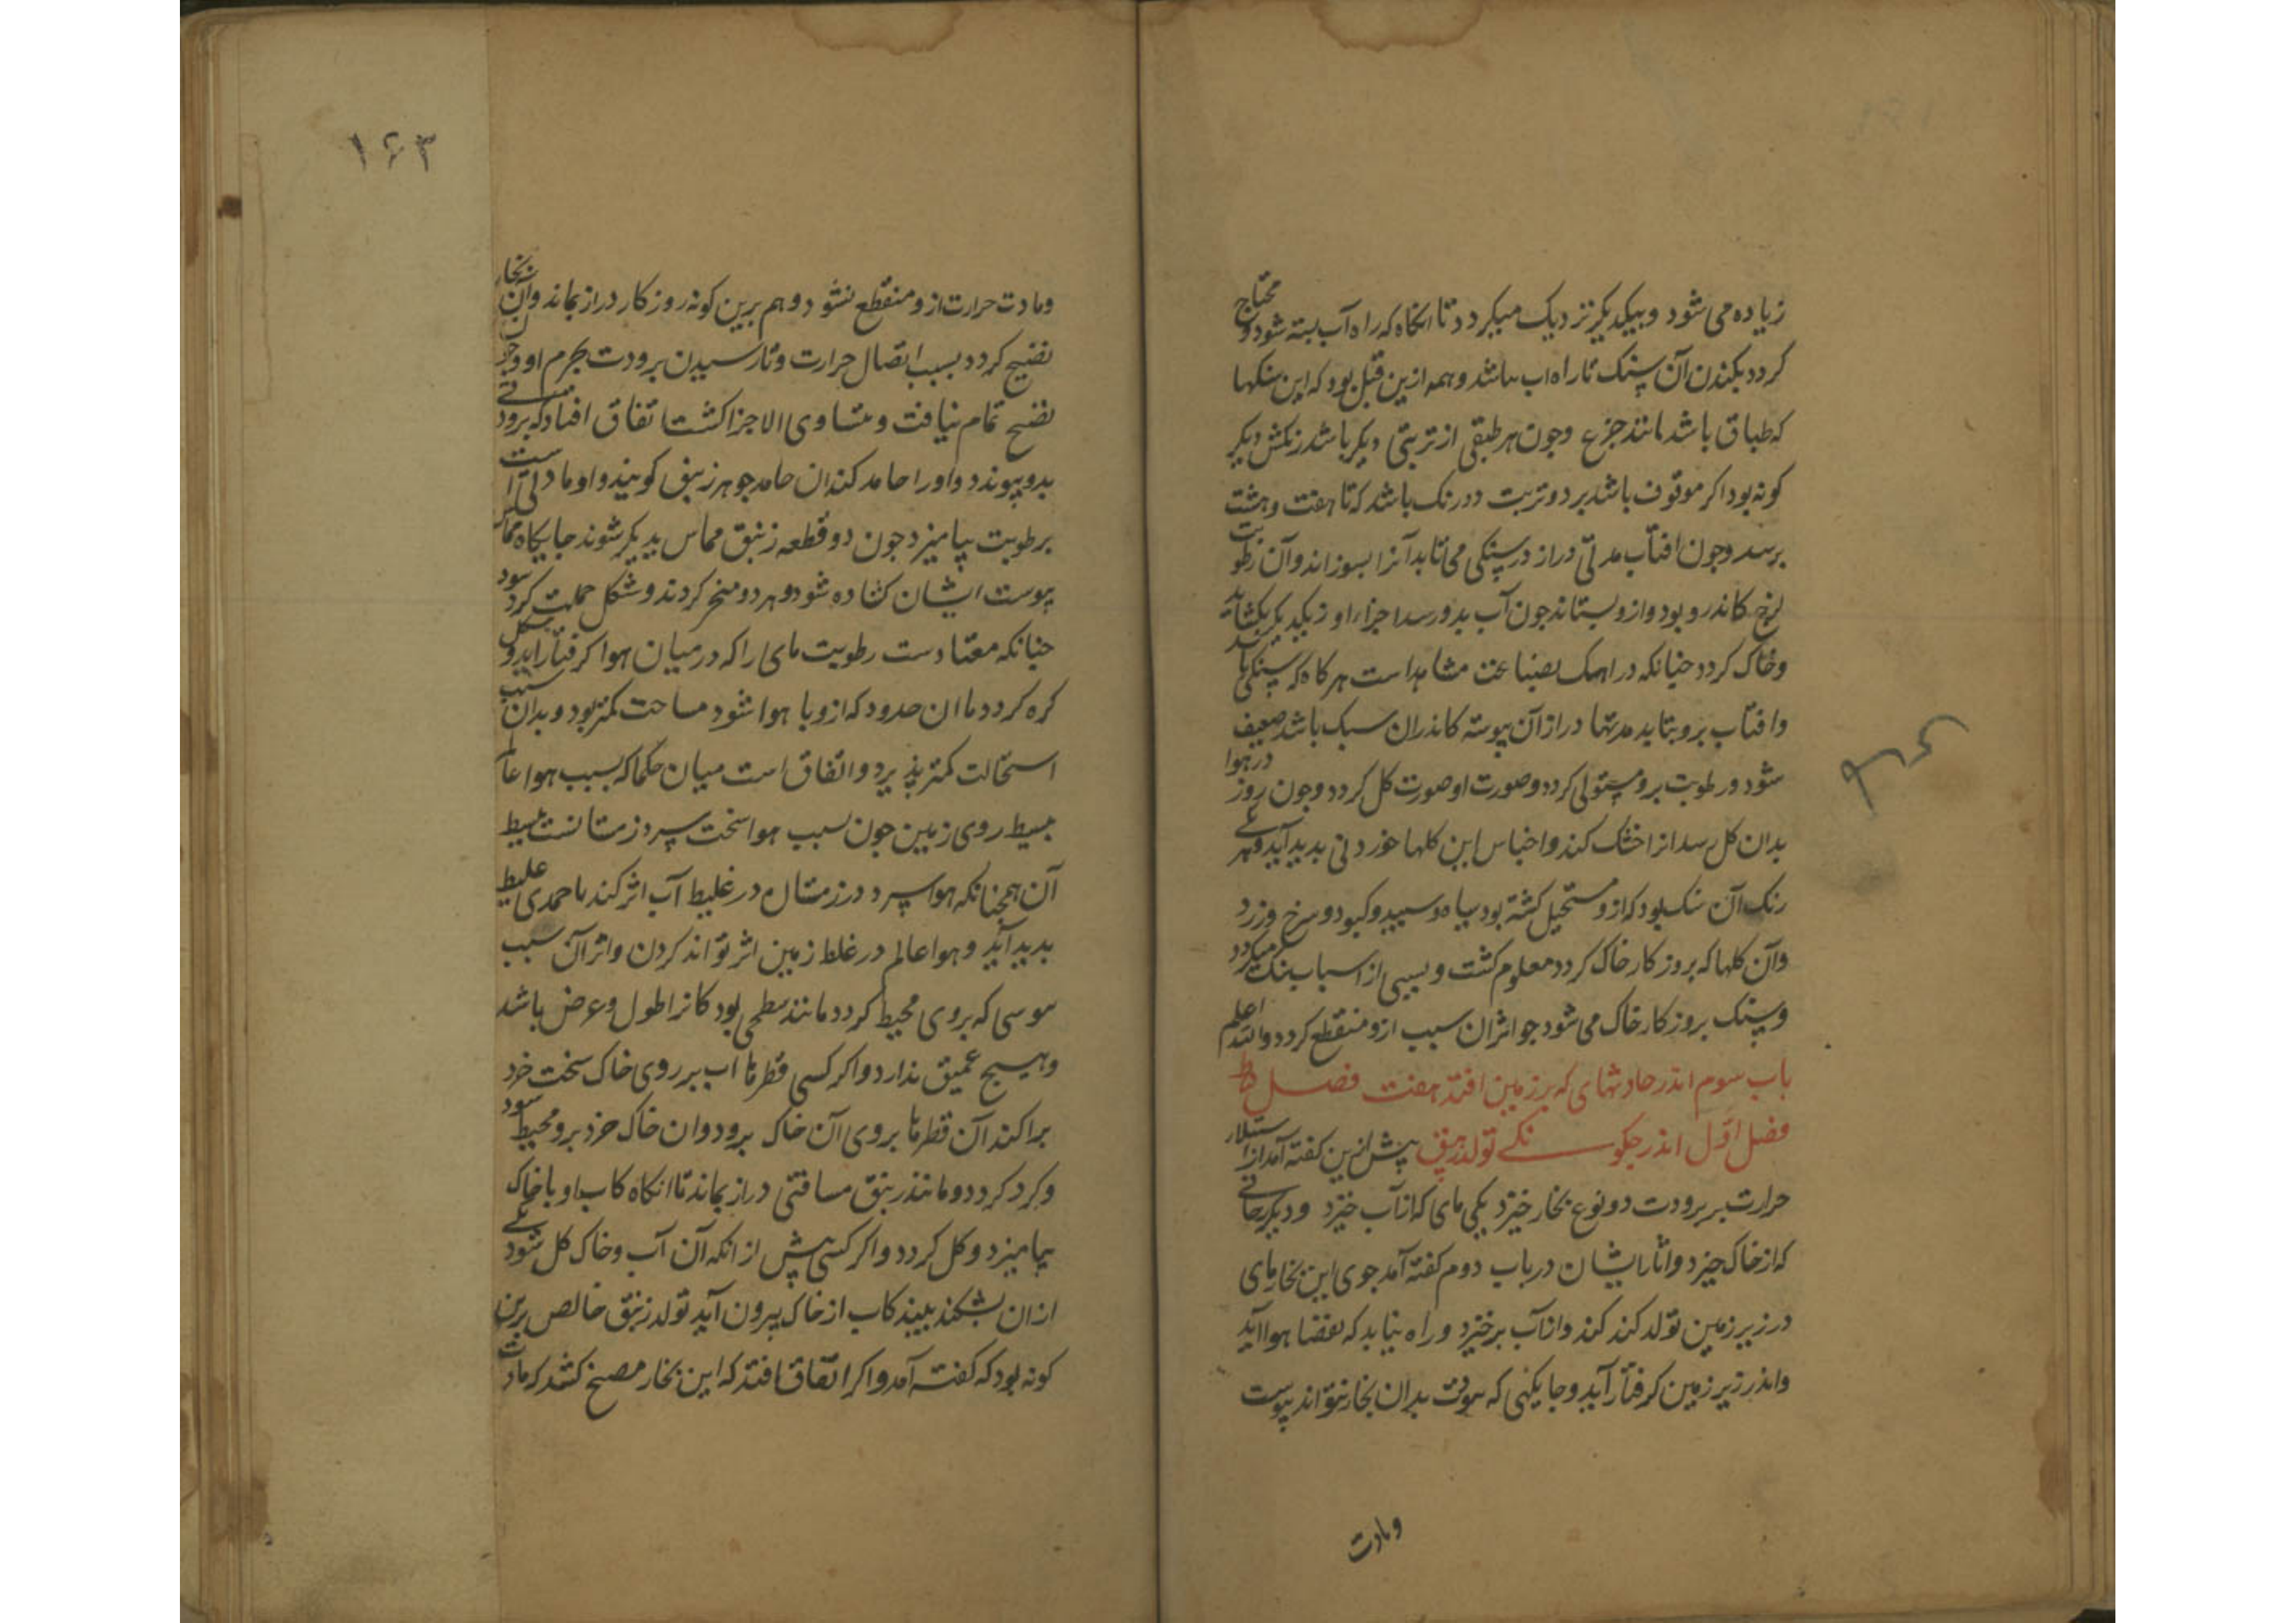 زیاده می شود و بیکدیکر نزدیک میکردد تا انکاه که راه آب بسته شود و محتاج
کردد بکندن آن سنک تا راه اب باشد و هم ازین قبل بود که این سنکها
که طباق باشد مانند جزع وجون هر طبقی از تربتی دیکر باشد رنکش دیکر
کونه بود اکر موقوف باشد بر دو تربت دو رنک باشد که تا هفت و هشت
برسد وجون افتاب مدتی دراز در سنکی می تابد آنرا بسوزاند و آن رطوبت
لزج کاندرو بود وازو بستاند جون آب بدو رسد اجزاء او زیکدیکر بکشاید
و خاک کردد جنانکه در اهک بصناعت مشاهد است هر کاه که سنکی باشد
وافتاب برو بتابد مدتها دراز آن پوسته کاندران سبک باشد ضعیف
شود و رطوبت برو مستولی کردد و صورت او صورت کل کردد وجون روز در هوا
بدان کل رسد انرا خشک کند و اجناس این کلها خوردنی بدید آید و بر
رنک آن سنک بود که ازو مستحیل کشته بود سیاه و سپید و کبود و سرخ و زرد
وآن کلها که بروزکار خاک کردد معلوم کشت و بسببی از اسباب سنک میکردد
و سنک بروزکار خاک می شود جو اثر ان سبب ازو منقطع کردد والله اعلم
باب سوم اندر حادثهای که بر زمین افتد هفت فصل
فصل اول اندر جکونکی تولد زیبق پیش ازین کفته آمد از استیلاء
حرارت بر برودت دو نوع بخار خیزد یکی مای که از آب خیزد و دیکر
که از خاک خیزد و اثار ایشان در باب دوم کفته آمد جوی این بخار مای
در زیر زمین تولد کند و از آب برخیزد و راه نیابد که بفضا هوا اید
واندر زیر زمین کرفتار آید و جایکهی که برودت بدان بخار نتواند پیوست
و مادت
۱۶۳
ومادت حرارت ازو منقطع نشود و هم برین کونه روزکار دراز بماند و آن بخار
نضیج کردد بسبب اتصال حرارت و نارسیدن برودت بجرم او وجون
نضج تمام نیافت و متساوی الاجزا کشت اتفاق افتاد که برودتی
بدو پیوندد و او را جامد کند ان جامد جوهر زیبق کویند و او مادتی است
برطوبت بیامیزد جون دو قطعه زیبق مماس یدیکر شوند جایکاه مماس
پوست ایشان کشاده شود و هر دو کردند و شکل جملت کرد شود
جنانکه معتادست رطوبت مای را که در میان هوا کرفتار اید و شکل
کره کردد با ان حدود که ازو با هوا شود مساحت کمتر بود و بدان سبب
استحالت کمتر پذیرد و اتفاق است میان حکما که بسبب هوا عالم
بسیط روی زمین جون بسبب هوا سخت سرد زمتانست بسیط
آن همجنانکه هوا سرد در زمستان در غلیظ آب اثر کند تا جمدی غلیظ
بدید آید و هوا عالم در غلظ زمین اثر تواند کردن و اثر آن سبب
موسی که بروی محیط کردد مانند سطحی بود کانرا طول و عرض باشد
و هیج عمیق ندارد و اکر کسی قطرها اب بر روی خاک سخت خرد
براکند آن قطرها بروی آن خاک برود و ان خاک خرد برو محیط شود
و کرد کردد و مانند زیبق مسافتی دراز بماند تا انکاه کاب او با خاک
بیامیزد و کل کردد و اکر کسی پیش از انکه آن آب و خاک کل شود
ازان بشکند بیند کاب از خاک بیرون آید تولد زیبق خالص برین
کونه بود که کفته آمد و اکر اتفاق افتد که این بخار کشد که مادت